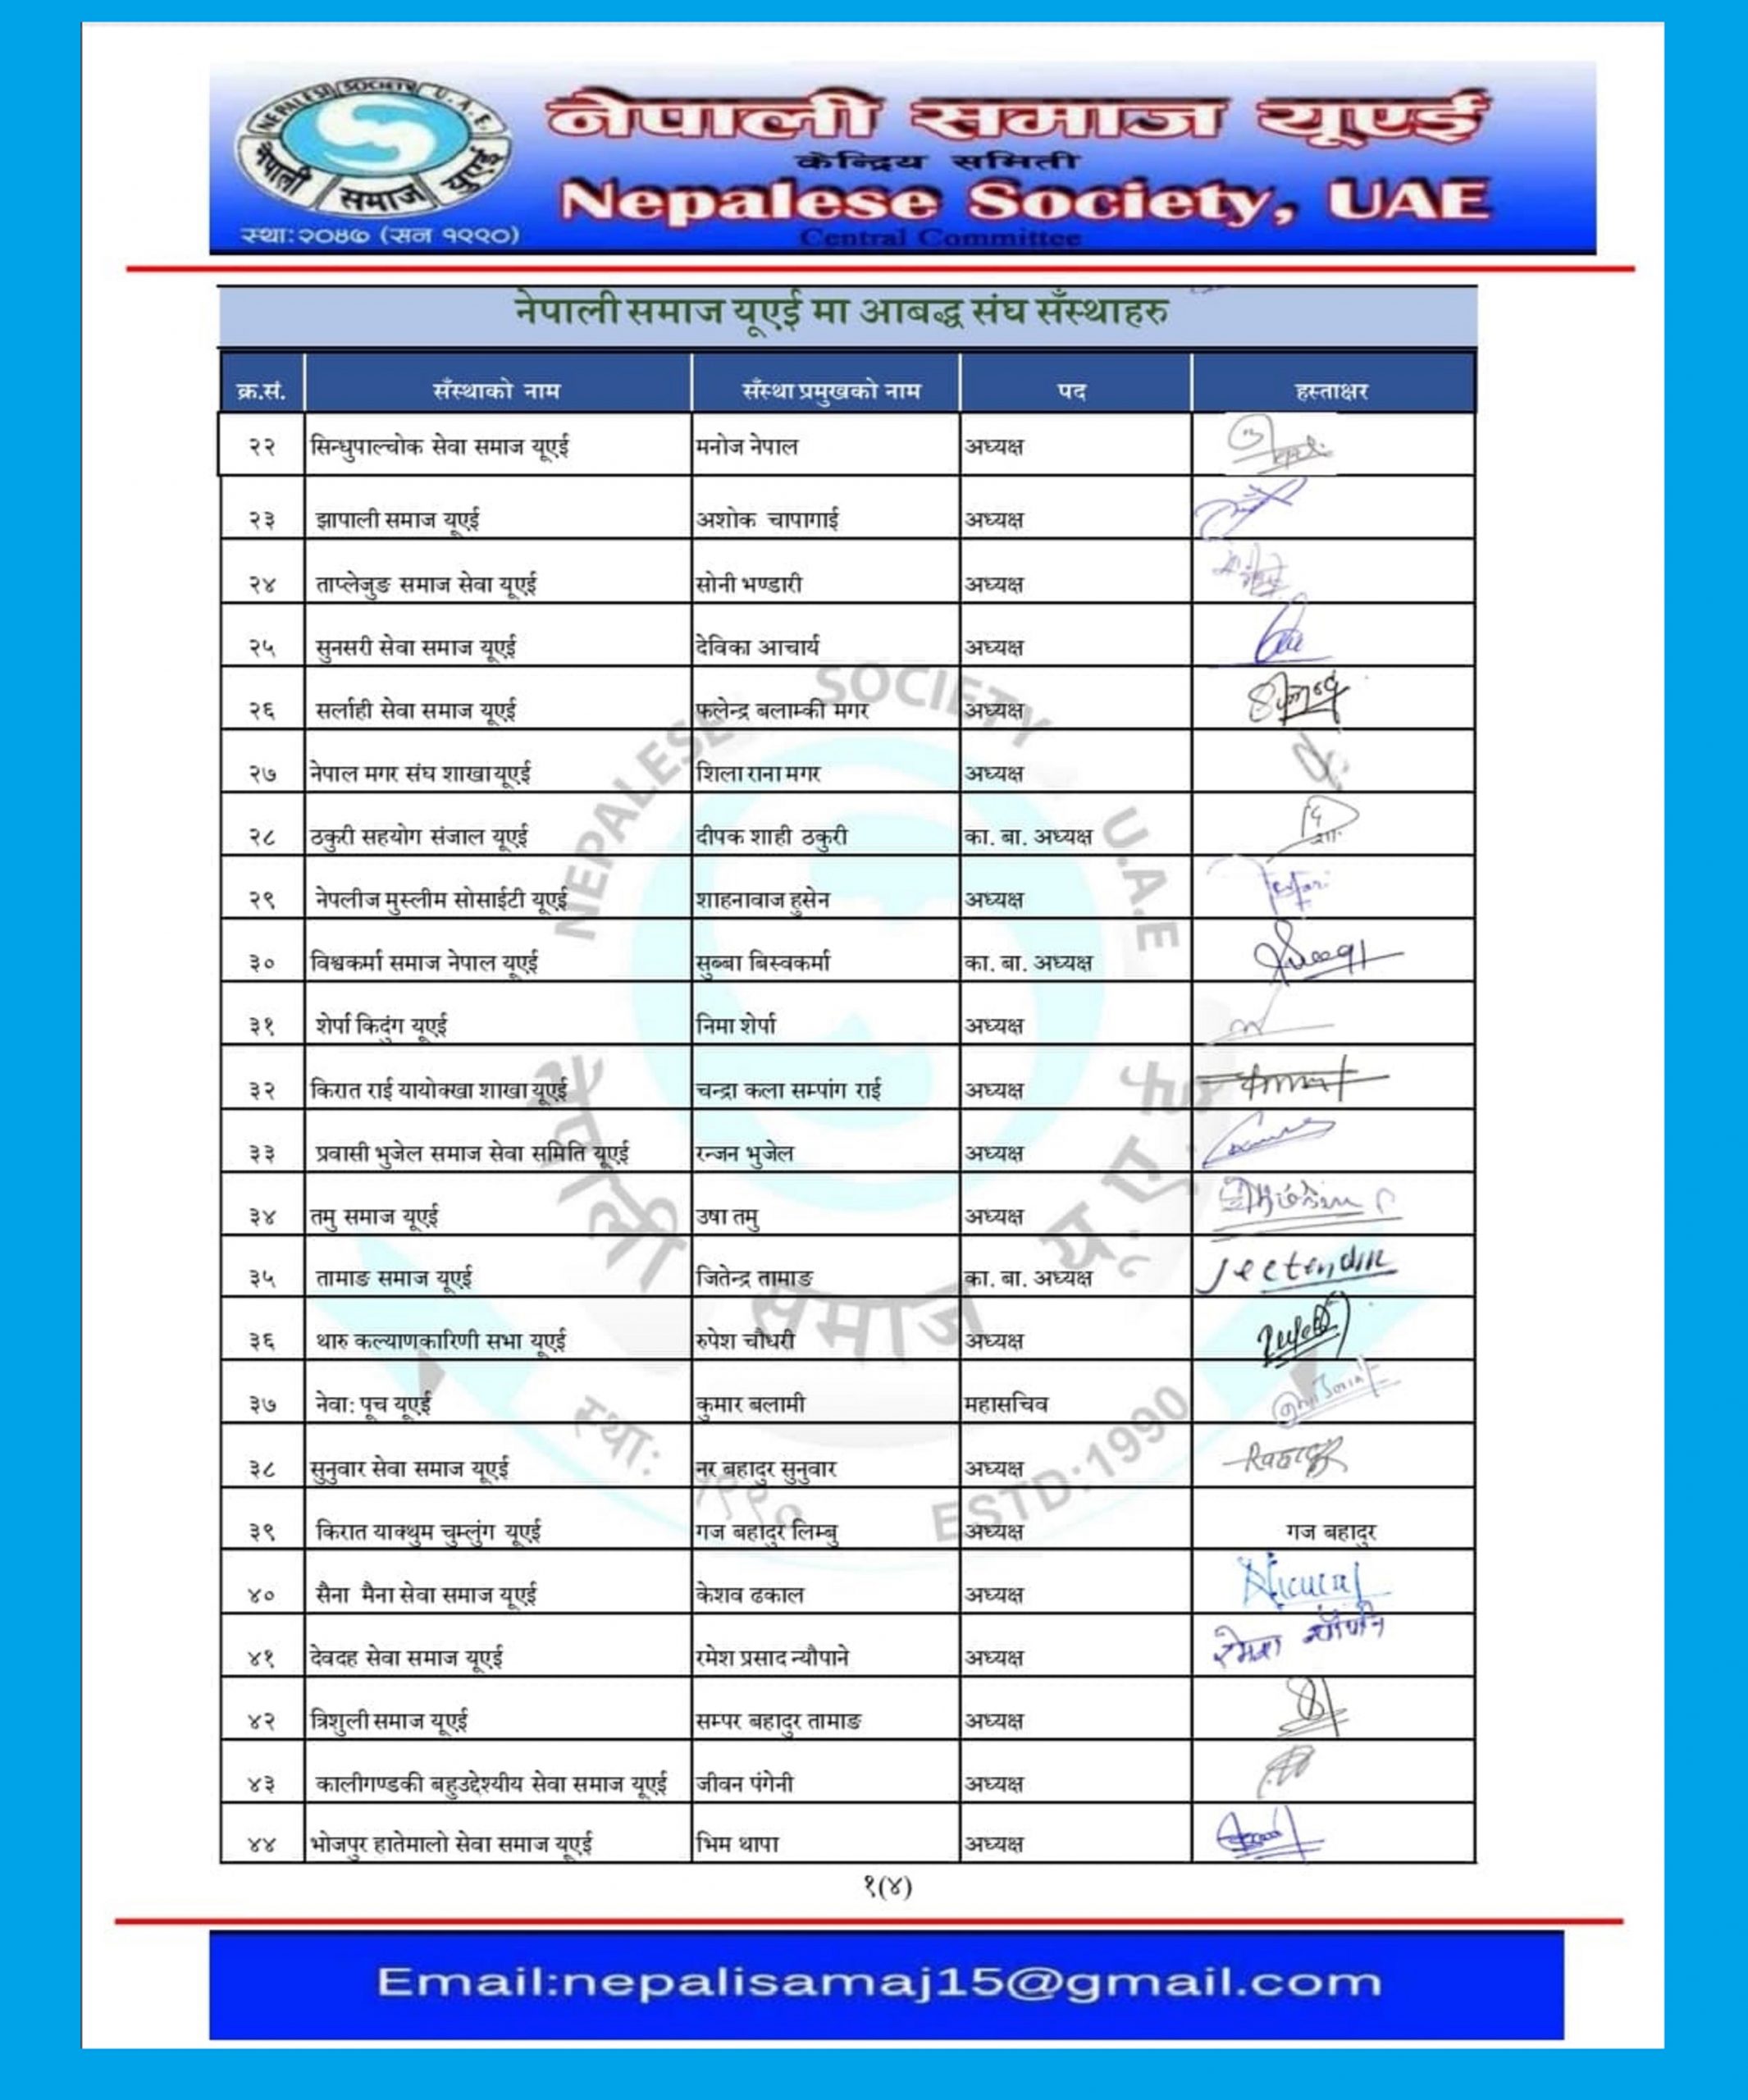 NEPALESE SOCIETY U.A.E.
नेपाली समाज यूएई
स्था:२०४७ (सन १९९०)
नेपाली समाज यूएई
केन्द्रिय समिती
Nepalese Society, UAE
Central Committee
नेपाली समाज यूएई मा आबद्ध संघ सँस्थाहरु
क्र.सं. सँस्थाको नाम सँस्था प्रमुखको नाम पद हस्ताक्षर
२२ सिन्धुपाल्चोक सेवा समाज यूएई मनोज नेपाल अध्यक्ष
२३ झापाली समाज यूएई अशोक चापागाई अध्यक्ष
२४ ताप्लेजुङ समाज सेवा यूएई सोनी भण्डारी अध्यक्ष
२५ सुनसरी सेवा समाज यूएई देविका आचार्य अध्यक्ष
२६ सर्लाही सेवा समाज यूएई फलेन्द्र बलाम्की मगर अध्यक्ष
२७ नेपाल मगर संघ शाखा यूएई शिला राना मगर अध्यक्ष
२८ ठकुरी सहयोग संजाल यूएई दीपक शाही ठकुरी का. बा. अध्यक्ष
२९ नेपलीज मुस्लीम सोसाईटी यूएई शाहनावाज हुसेन अध्यक्ष
३० विश्वकर्मा समाज नेपाल यूएई सुब्बा बिस्वकर्मा का. बा. अध्यक्ष
३१ शेर्पा किदुंग यूएई निमा शेर्पा अध्यक्ष
३२ किरात राई यायोक्खा शाखा यूएई चन्द्रा कला सम्पांग राई अध्यक्ष
३३ प्रवासी भुजेल समाज सेवा समिति यूएई रन्जन भुजेल अध्यक्ष
३४ तमु समाज यूएई उषा तमु अध्यक्ष
३५ तामाङ समाज यूएई जितेन्द्र तामाङ का. बा. अध्यक्ष
३६ थारु कल्याणकारिणी सभा यूएई रुपेश चौधरी अध्यक्ष
३७ नेवा: पूच यूएई कुमार बलामी महासचिव
३८ सुनुवार सेवा समाज यूएई नर बहादुर सुनुवार अध्यक्ष
३९ किरात याक्थुम चुम्लुंग यूएई गज बहादुर लिम्बु अध्यक्ष गज बहादुर
४० सैना मैना सेवा समाज यूएई केशव ढकाल अध्यक्ष
४१ देवदह सेवा समाज यूएई रमेश प्रसाद न्यौपाने अध्यक्ष
४२ त्रिशुली समाज यूएई सम्पर बहादुर तामाङ अध्यक्ष
४३ कालीगण्डकी बहुउद्देश्यीय सेवा समाज यूएई जीवन पंगेनी अध्यक्ष
४४ भोजपुर हातेमालो सेवा समाज यूएई भिम थापा अध्यक्ष
NEPALESE SOCIETY U.A.E
नेपाली समाज यू.ए.ई
स्था: १९९० ESTD:1990
१(४)
Email:nepalisamaj15@gmail.com